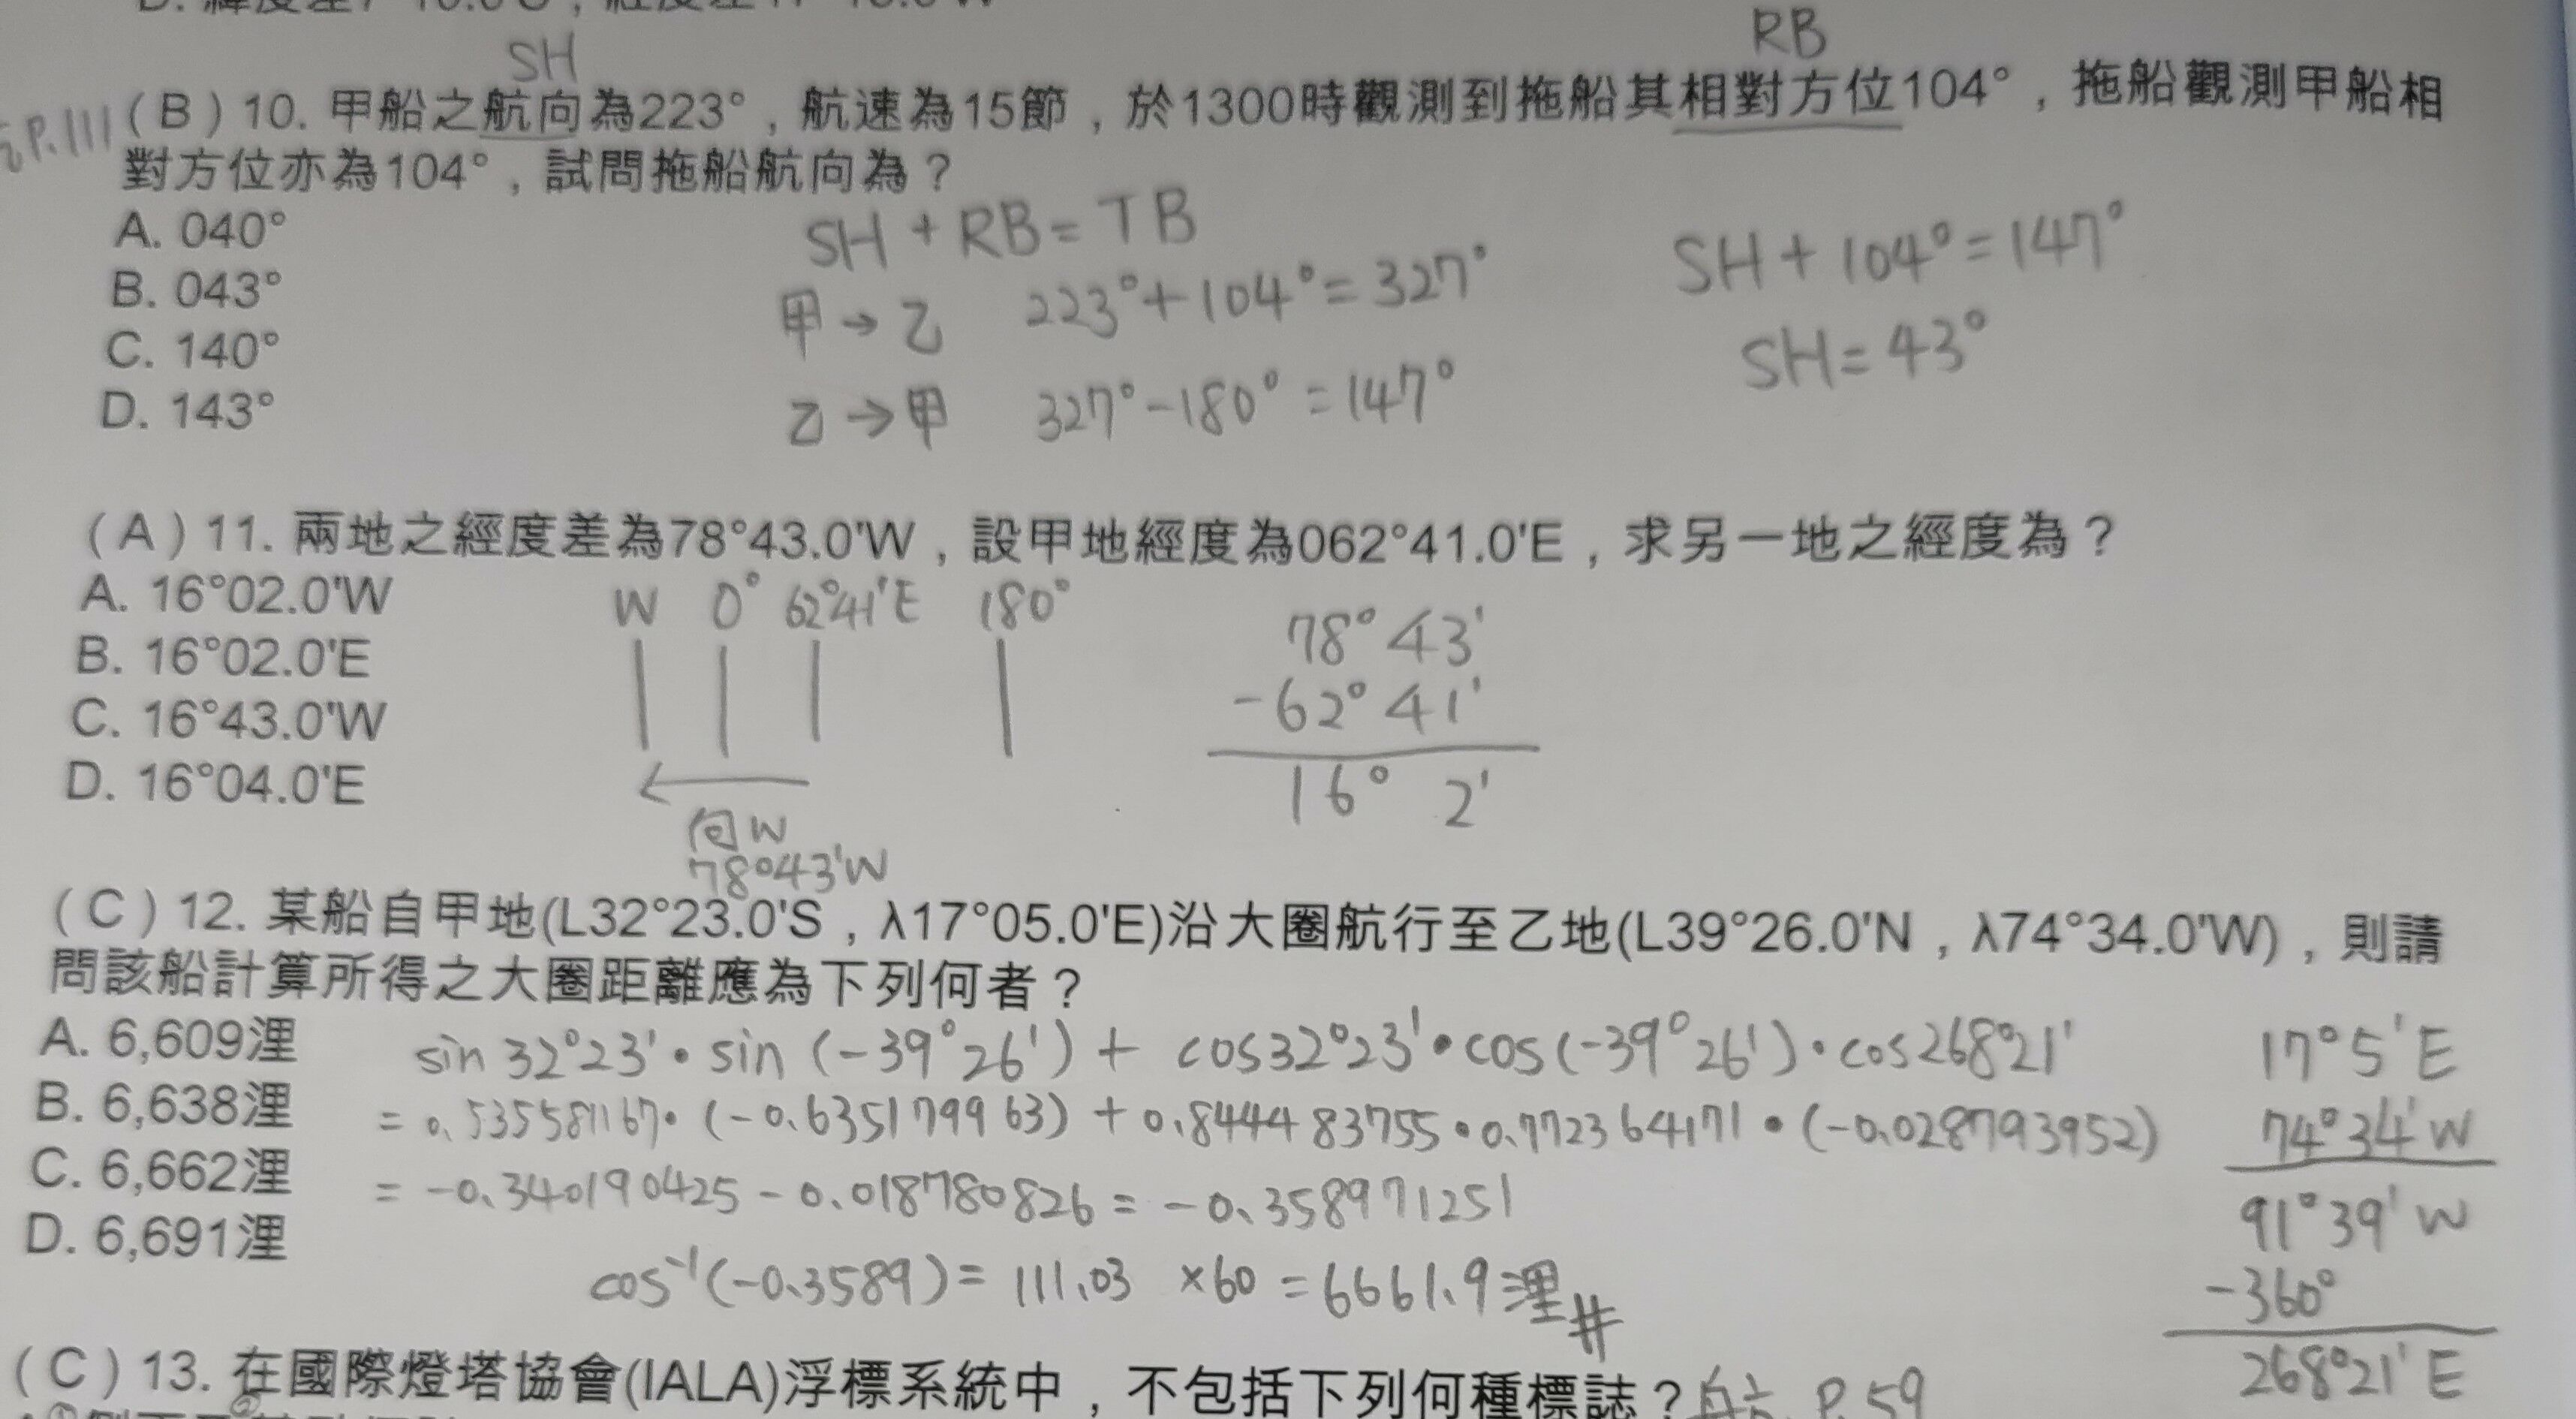 SH
RB
P.111
(B) 10. 甲船之航向為223°，航速為15節，於1300時觀測到拖船其相對方位104°，拖船觀測甲船相
對方位亦為104°，試問拖船航向為？
A. 040°
B. 043°
C. 140°
D. 143°
SH + RB = TB
甲→乙 223°+104°=327°
乙→甲 327°-180°=147°
SH + 104°=147°
SH=43°
(A) 11. 兩地之經度差為78°43.0'W，設甲地經度為062°41.0'E，求另一地之經度為？
A. 16°02.0'W
B. 16°02.0'E
C. 16°43.0'W
D. 16°04.0'E
W 0° 62°41'E 180°
向W
78°43'W
78°43'
-62°41'
16° 2'
(C) 12. 某船自甲地(L32°23.0'S，λ17°05.0'E)沿大圈航行至乙地(L39°26.0'N，λ74°34.0'W)，則請
問該船計算所得之大圈距離應為下列何者？
A. 6,609浬
B. 6,638浬
C. 6,662浬
D. 6,691浬
sin 32°23'·sin (-39°26') + cos32°23'·cos(-39°26')·cos268°21'
= 0.535581167·(-0.635179963) + 0.844483755·0.772364171·(-0.028793952)
= -0.340190425 - 0.018780826 = -0.358971251
cos⁻¹(-0.3589) = 111.03 ×60 = 6661.9浬#
17°5'E
74°34'W
91°39'W
-360°
268°21'E
(C) 13. 在國際燈塔協會(IALA)浮標系統中，不包括下列何種標誌？航 P.59